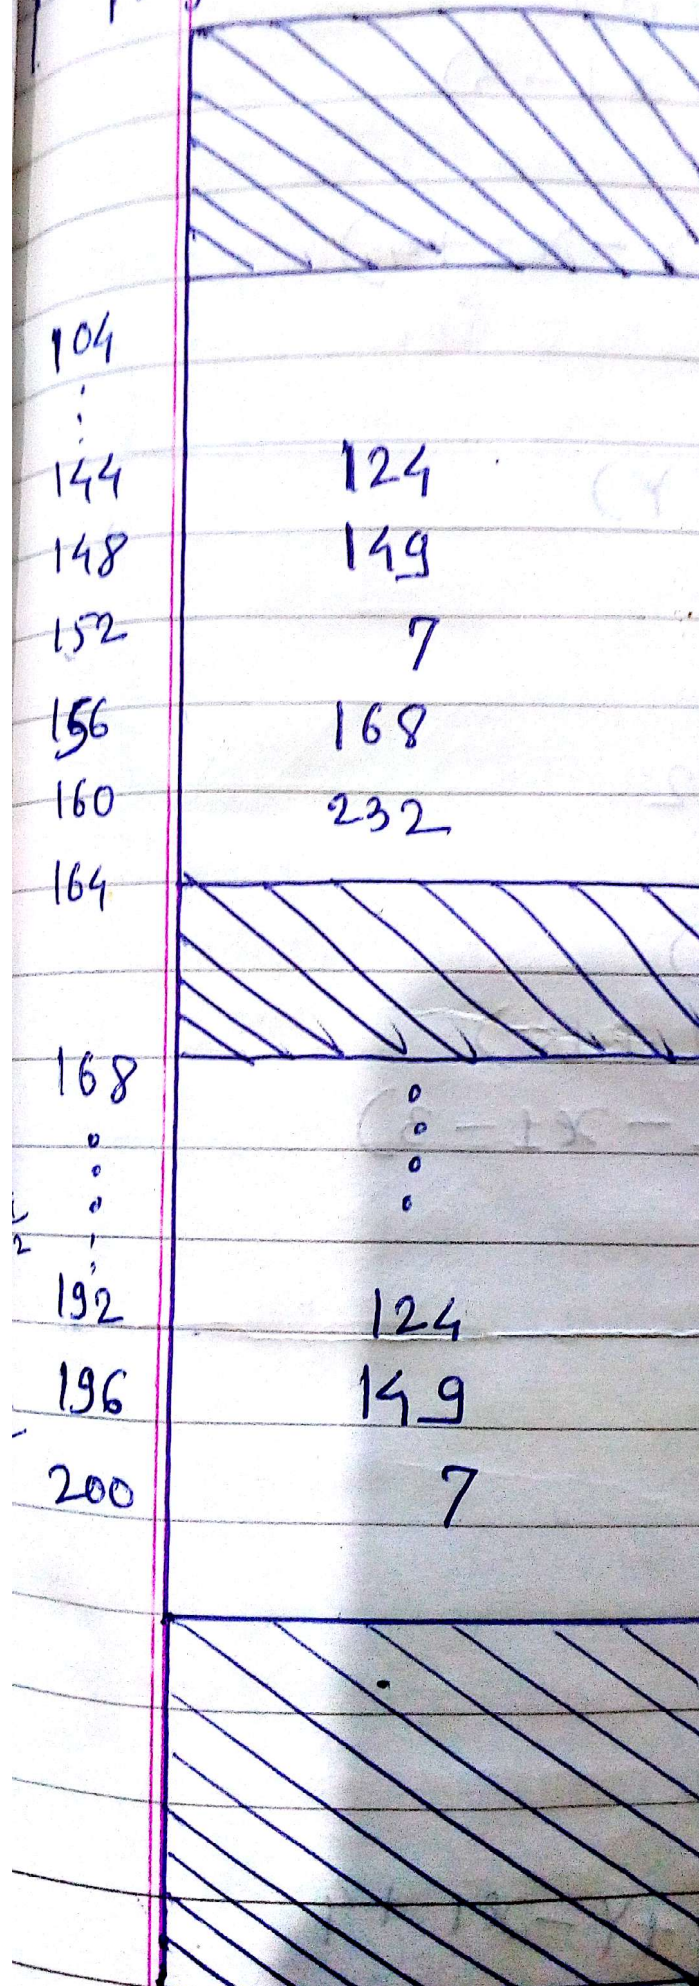 104
144 124
148 149
152 7
156 168
160 232
164
168
192 124
196 149
200 7